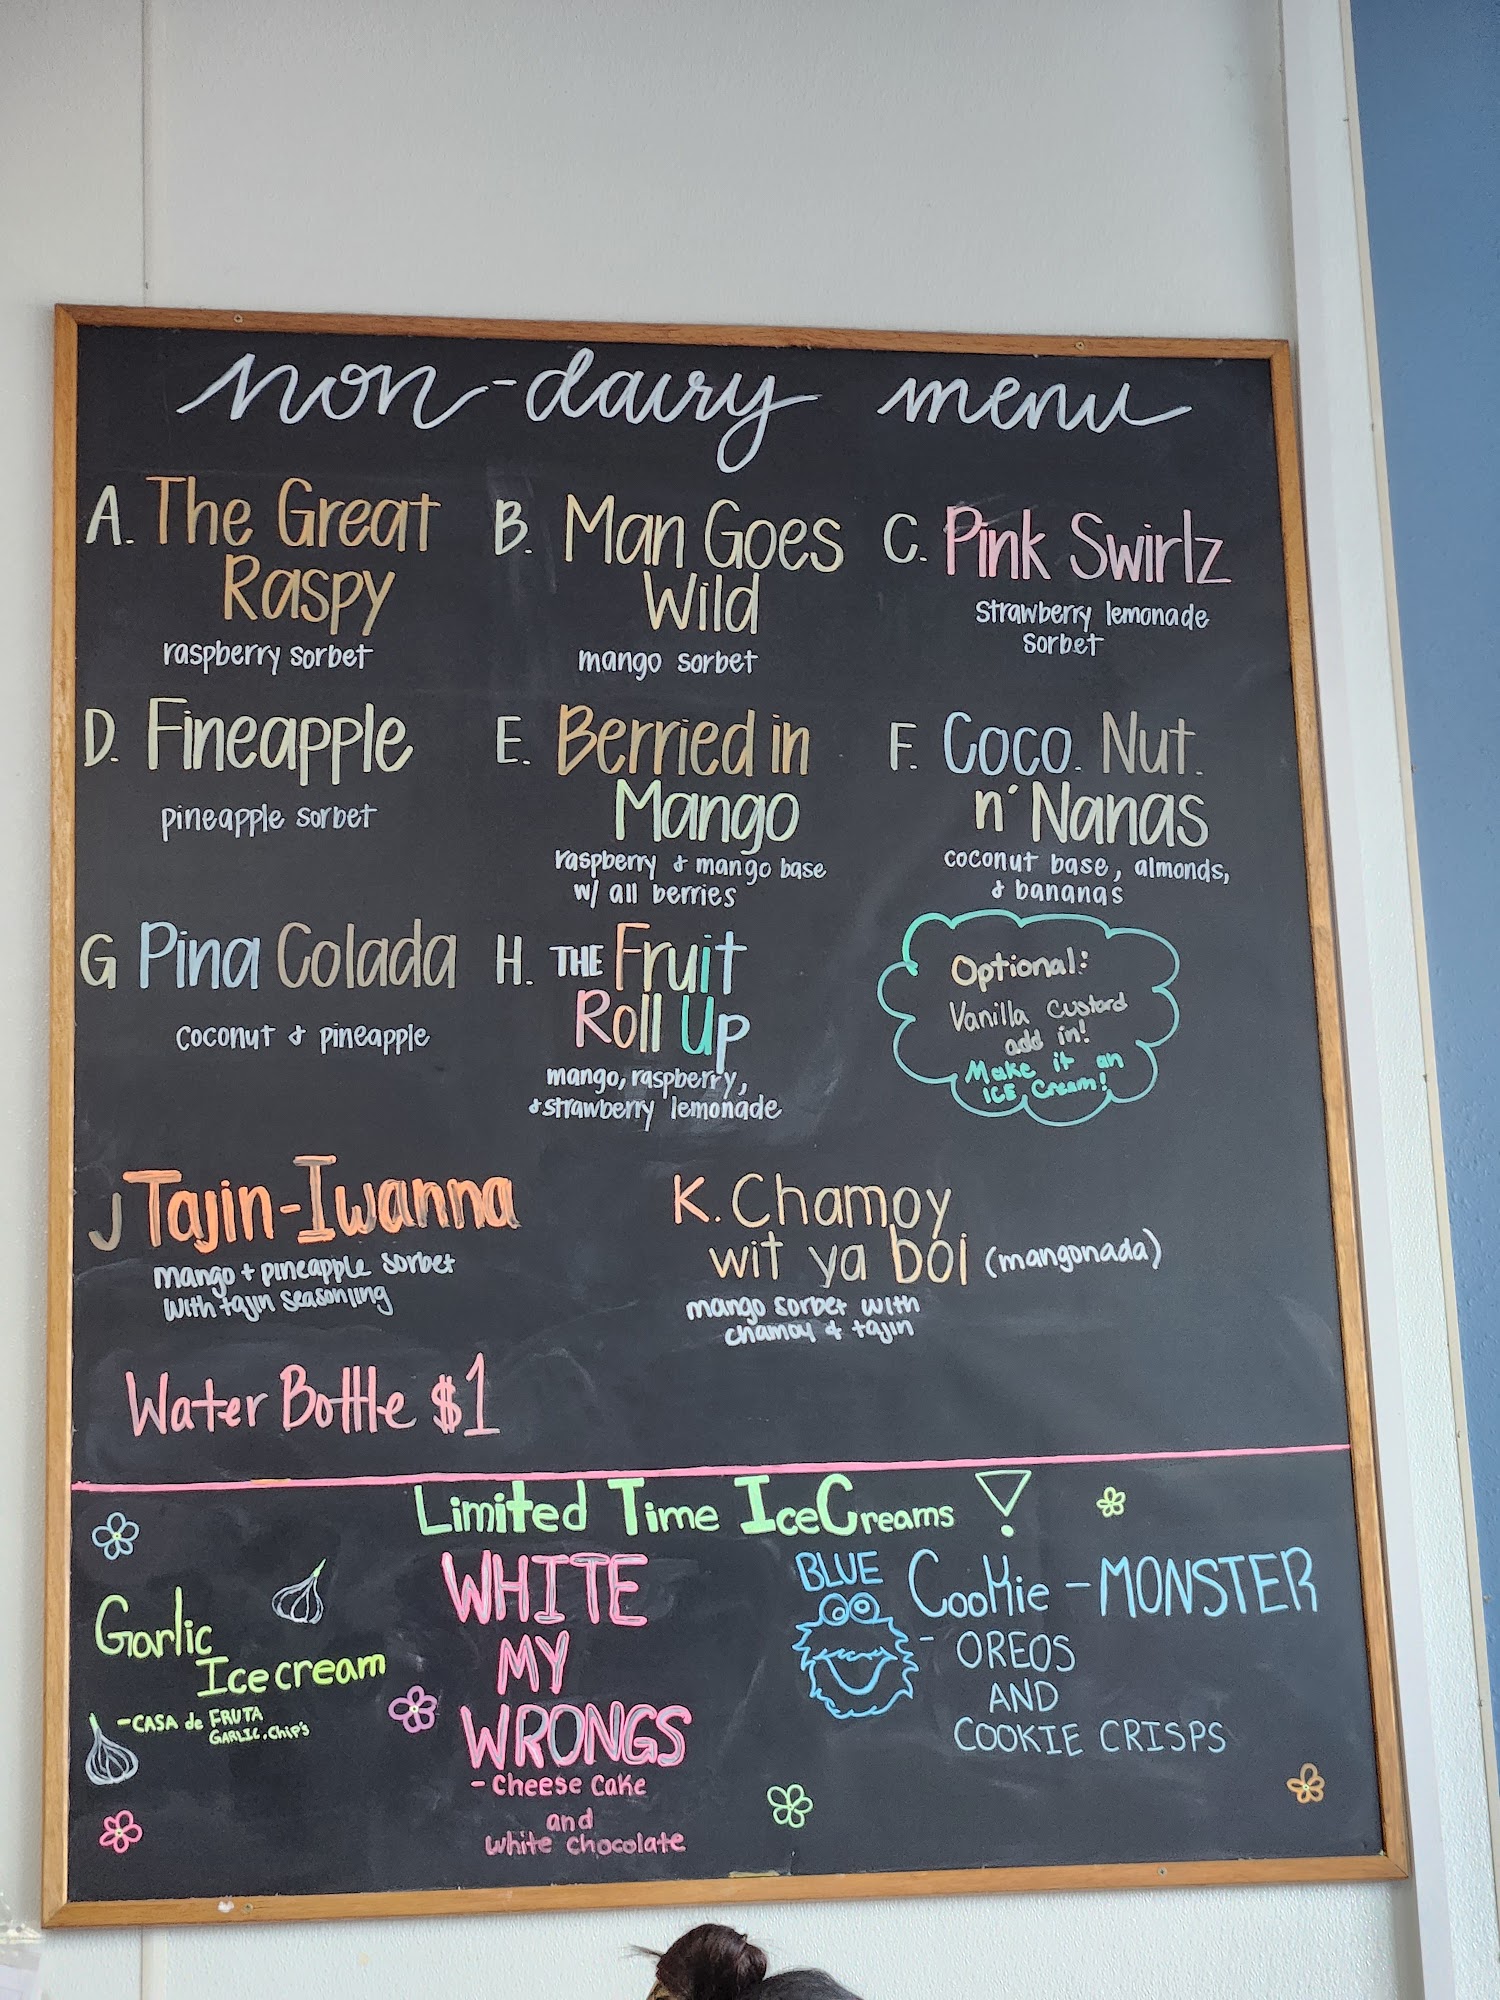 non-dairy menu
A. The Great
Raspy
raspberry sorbet
B. Man Goes
Wild
mango sorbet
C. Pink Swirlz
strawberry lemonade
sorbet
D. Fineapple
pineapple sorbet
E. Berried in
Mango
raspberry & mango base
w/ all berries
F. Coco. Nut.
n' Nanas
coconut base, almonds,
& bananas
G Pina Colada
coconut & pineapple
H. THE Fruit
Roll Up
mango, raspberry,
& strawberry lemonade
Optional:
Vanilla Custard
add in!
Make it an
ICE Cream!
J Tajin-Iwanna
mango + pineapple sorbet
with tajin seasoning
K. Chamoy
wit ya boi (mangonada)
mango sorbet with
chamoy & tajin
Water Bottle $1
Limited Time IceCreams !
Garlic
Ice cream
- CASA de FRUTA
GARLIC.Chip's
WHITE
MY
WRONGS
- Cheese Cake
and
white chocolate
BLUE Cookie - MONSTER
- OREOS
AND
COOKIE CRISPS